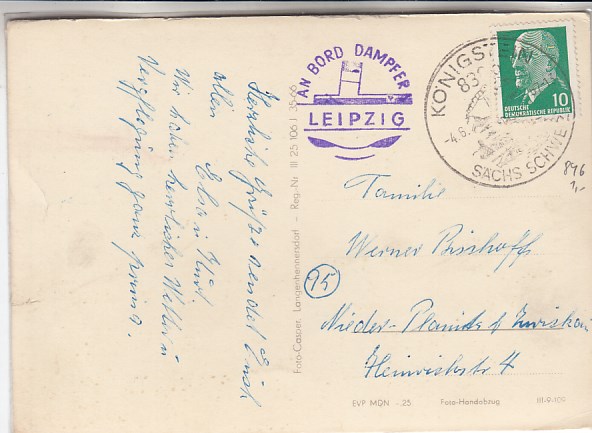 Herzliche Grüße sendet Euch
allen Elsa u. Kurt
Wir haben herrliches Wetter u.
Verpflegung ganz prima.
Foto-Casper, Langenhennersdorf – Reg.-Nr. III 25 106 I 35 66
AN BORD DAMPFER
LEIPZIG
KÖNIGST
83
-4.6.
SÄCHS SCHWE
DEUTSCHE
DEMOKRATISCHE REPUBLIK
10
846
1,-
Familie
Werner Bischoff
95
Nieder-Planitz b/ Zwickau
Heinrichstr 4
EVP MDN -.25
Foto-Handabzug
III-9-109